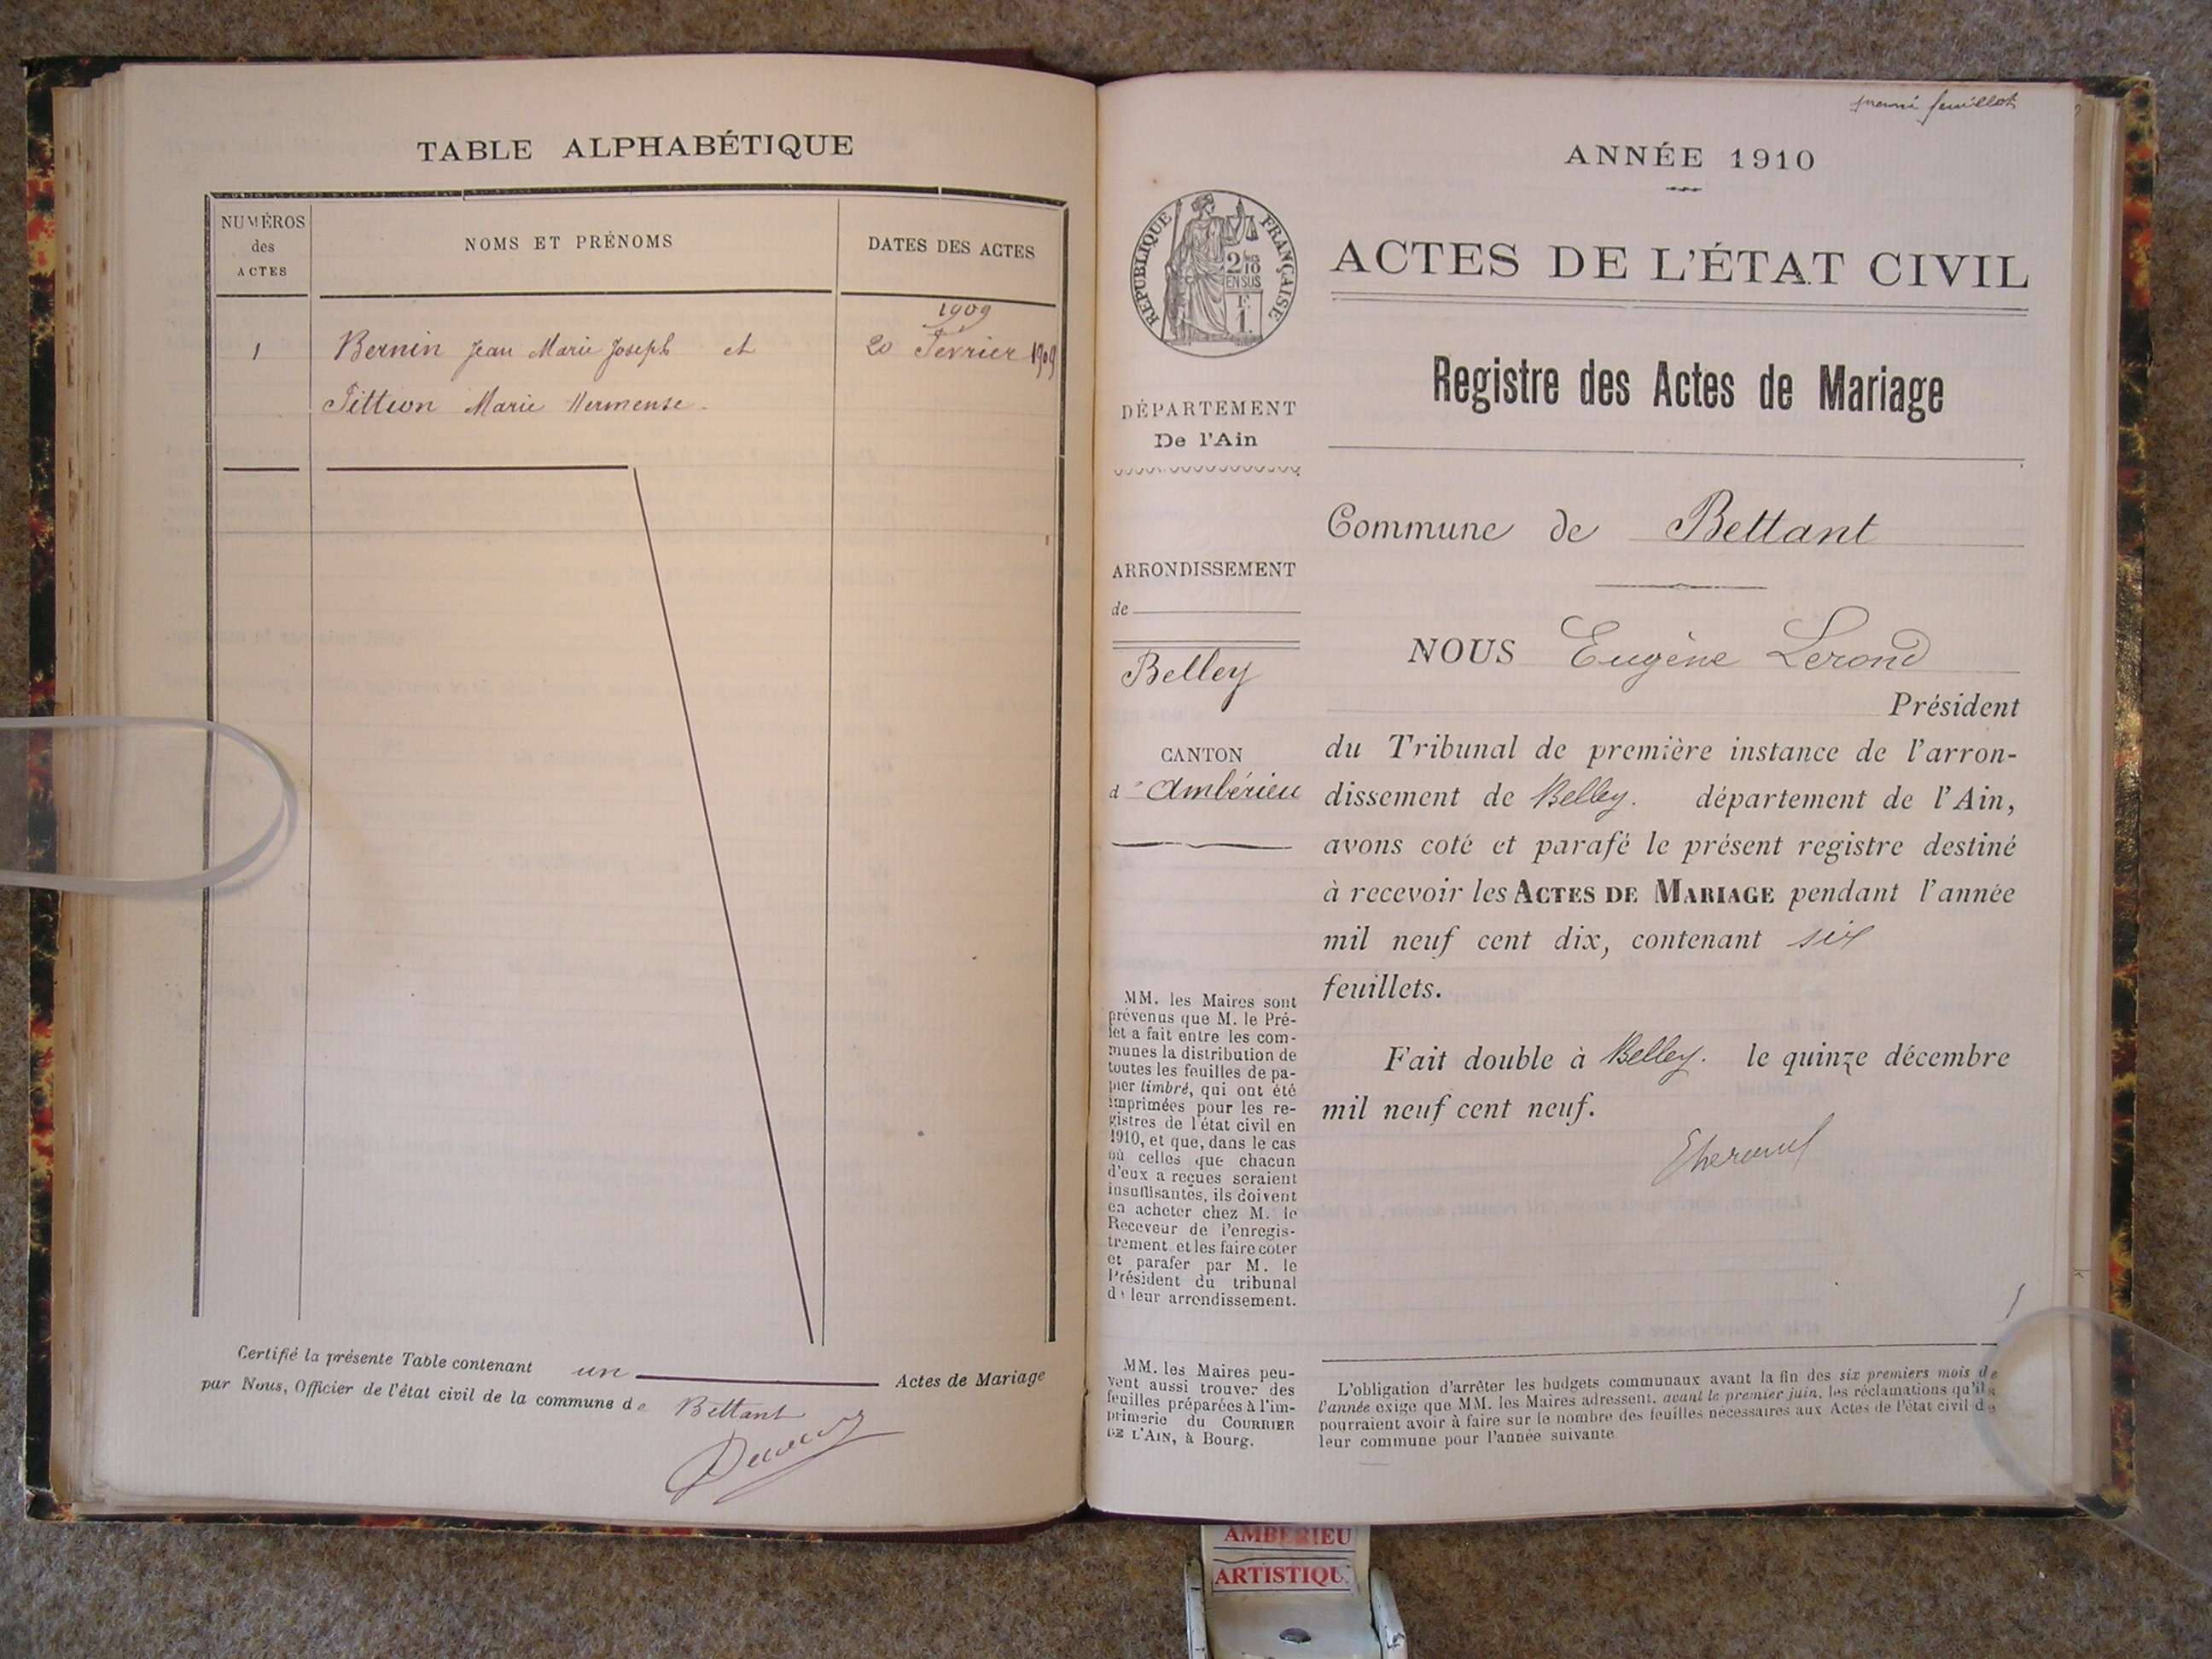 TABLE ALPHABÉTIQUE
NUMÉROS
des
ACTES
NOMS ET PRÉNOMS
DATES DES ACTES
1909
1 Bernin Jean Marie Joseph et 20 Fevrier 1909
Pittion Marie Hermense.
Certifié la présente Table contenant un Actes de Mariage
par Nous, Officier de l'état civil de la commune de Bettant
ANNÉE 1910
RÉPUBLIQUE FRANÇAISE
2/10
EN SUS
F.
1.
ACTES DE L'ÉTAT CIVIL
Registre des Actes de Mariage
DÉPARTEMENT
De l'Ain
ARRONDISSEMENT
de
Belley
CANTON
d'Ambérieu
MM. les Maires sont
prévenus que M. le Pré-
fet a fait entre les com-
munes la distribution de
toutes les feuilles de pa-
pier timbré, qui ont été
imprimées pour les re-
gistres de l'état civil en
1910, et que, dans le cas
où celles que chacun
d'eux a reçues seraient
insuffisantes, ils doivent
en acheter chez M. le
Receveur de l'enregis-
trement et les faire coter
et parafer par M. le
Président du tribunal
de leur arrondissement.
MM. les Maires peu-
vent aussi trouver des
feuilles préparées à l'im-
primerie du COURRIER
DE L'AIN, à Bourg.
Commune de Bettant
NOUS Eugène Lerond
Président
du Tribunal de première instance de l'arron-
dissement de Belley. département de l'Ain,
avons coté et parafé le présent registre destiné
à recevoir les ACTES DE MARIAGE pendant l'année
mil neuf cent dix, contenant six
feuillets.
Fait double à Belley. le quinze décembre
mil neuf cent neuf.
L'obligation d'arrêter les budgets communaux avant la fin des six premiers mois de
l'année exige que MM. les Maires adressent, avant le premier juin, les réclamations qu'ils
pourraient avoir à faire sur le nombre des feuilles nécessaires aux Actes de l'état civil de
leur commune pour l'année suivante
AMBERIEU
ARTISTIQU